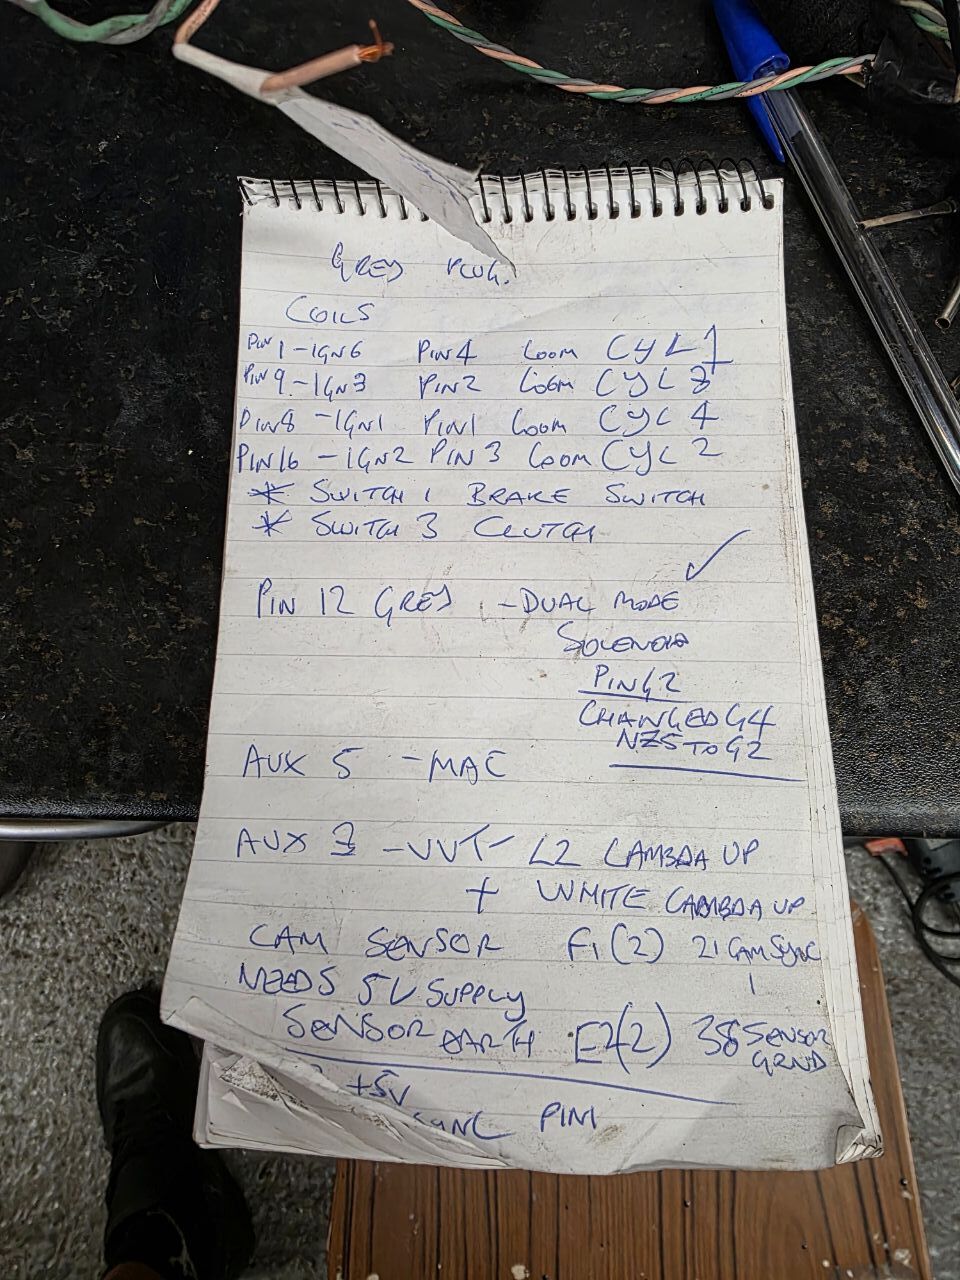 GREY PLUG.
COILS
PIN 1 - IGN6 PIN4 LOOM CYL 1
PIN 9 - IGN3 PIN2 LOOM CYL 3
PIN8 - IGN1 PIN1 LOOM CYL 4
PIN16 - IGN2 PIN 3 LOOM CYL 2
* SWITCH 1 BRAKE SWITCH
* SWITCH 3 CLUTCH
PIN 12 GREY - DUAL MODE ✓
SOLENOID
PIN G2
CHANGED G4
NZ5 TO G2
AUX 5 - MAC
AUX 3 - VVT - L2 LAMBDA UP
+ WHITE LAMBDA UP
CAM SENSOR F1 (2) 21 CAM SYNC
1
NEEDS 5V SUPPLY
SENSOR EARTH E2(2) 38 SENSOR
GRND
+5V
SYNC PIN1